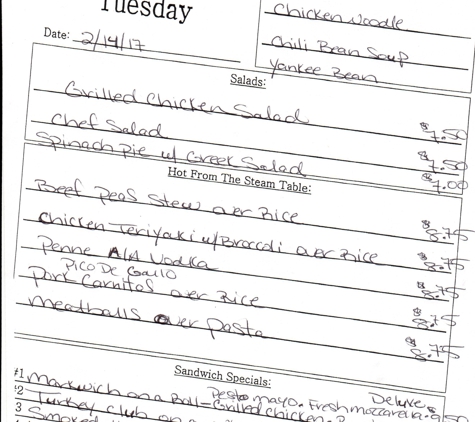 Tuesday
Date: 2/14/17
Chicken Noodle
Chili Bean Soup
Yankee Bean
Salads:
Grilled Chicken Salad $7.50
Chef Salad $7.50
Spinach Pie w/ Greek Salad $7.00
Hot From The Steam Table:
Beef Peas Stew over Rice $8.75
Chicken Teriyaki w/ Broccoli over Rice $8.75
Penne Ala Vodka $8.75
Pico De Gallo
Pork Carnitas over Rice $8.75
Meatballs over Pasta $8.75
Sandwich Specials:
Deluxe $
#1 Manwich on a Roll - Pesto mayo. Fresh mozzarella. 9.50
#2 Turkey Club on a Grilled chicken.
3 Smoked